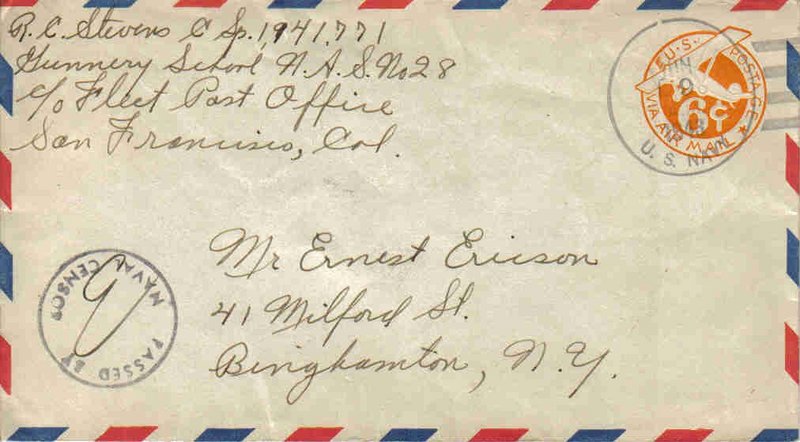 R. C. Stevens C Sp. 1941,771
Gunnery School N.A.S. No 28
c/o Fleet Post Office
San Francisco, Cal.
U.S. POSTAGE
VIA AIR MAIL
6¢
JUN
9
U. S. NAVY
Mr Ernest Ericson
41 Milford St.
Binghamton, N.Y.
PASSED BY
NAVAL CENSOR